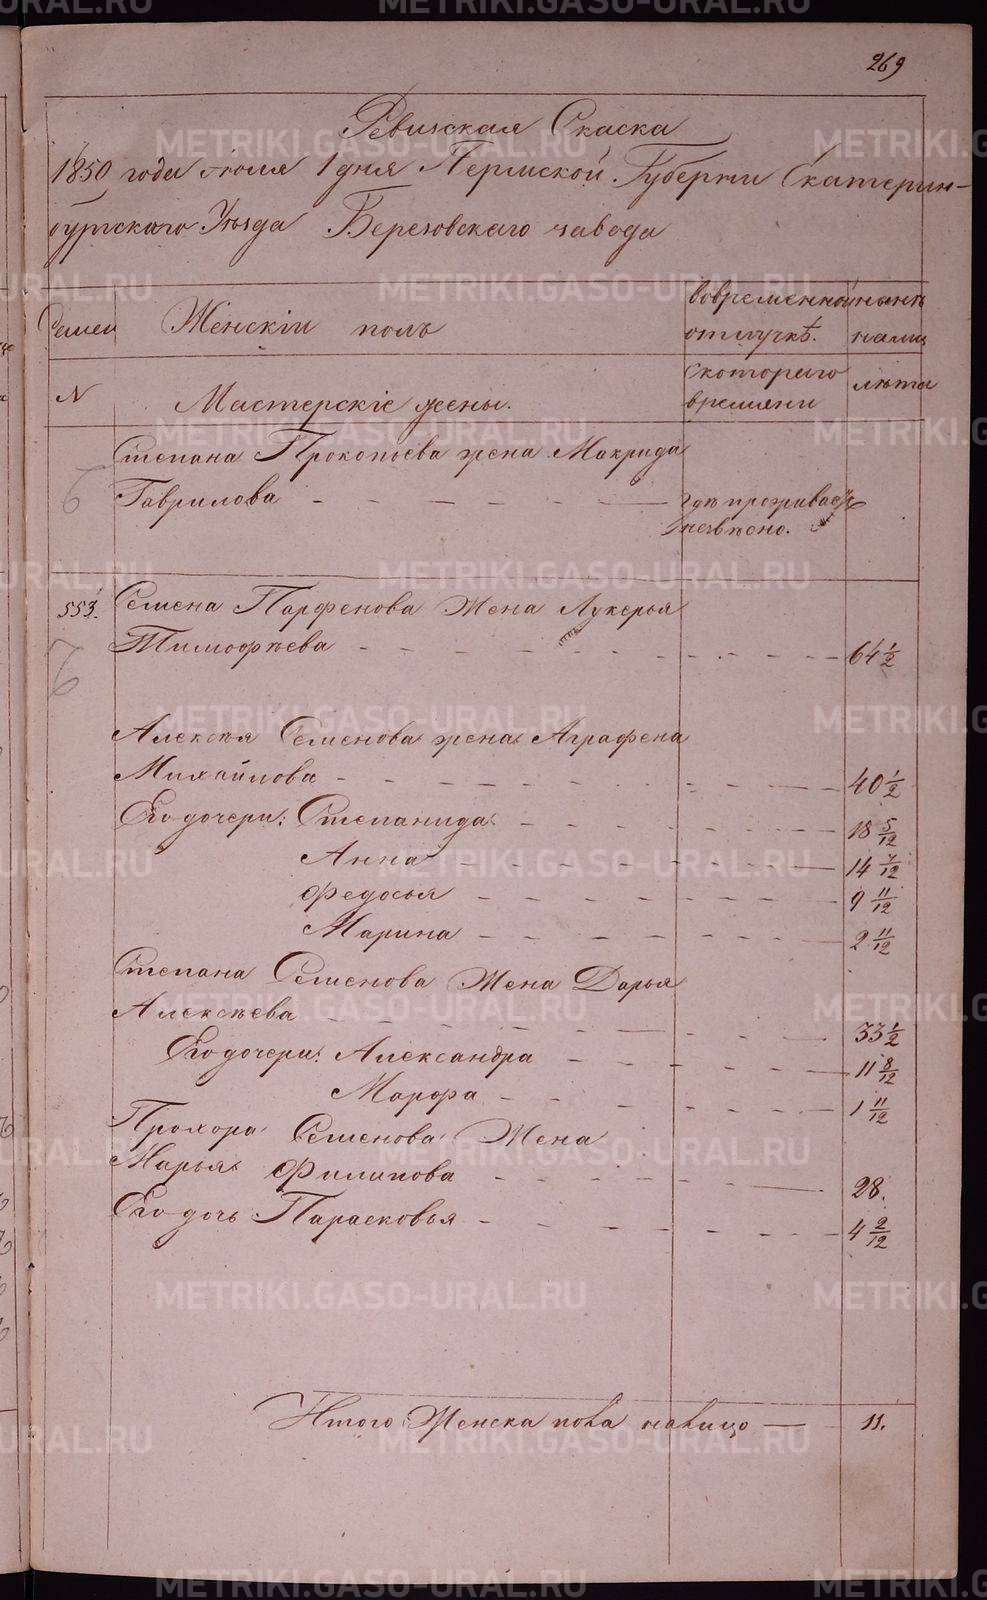 269
Ревизская Скаска
1850 года июля 1 дня Пермской Губерни Екатерин-
бургскаго Уѣзда Березовскаго завода
Семеи
Женскiи полъ
вовременной
отлучкѣ.
нынѣ
налиц
N
Мастерскiе жены.
скотораго
времяни
лѣта
Степана Прокопьева жена Макрида
Гаврилова
гдѣ проживаетъ
неизвѣсно.
553.
Семена Парфенова Жена Лукерья
Тимофѣева 64 1/2
Алексѣя Семенова жена Аграфена
Михайлова 40 1/2
Его дочери: Степанида 18 5/12
Анна 14 7/12
Федосья 9 11/12
Марина 2 11/12
Степана Семенова Жена Дарья
Алексѣева 33 1/2
Его дочери: Александра 11 8/12
Марфа 1 11/12
Прохора Семенова Жена
Марья Филипова 28.
Его дочь Парасковья 4 2/12
Итого Женска пола налицо — 11.
METRIKI.GASO-URAL.RU